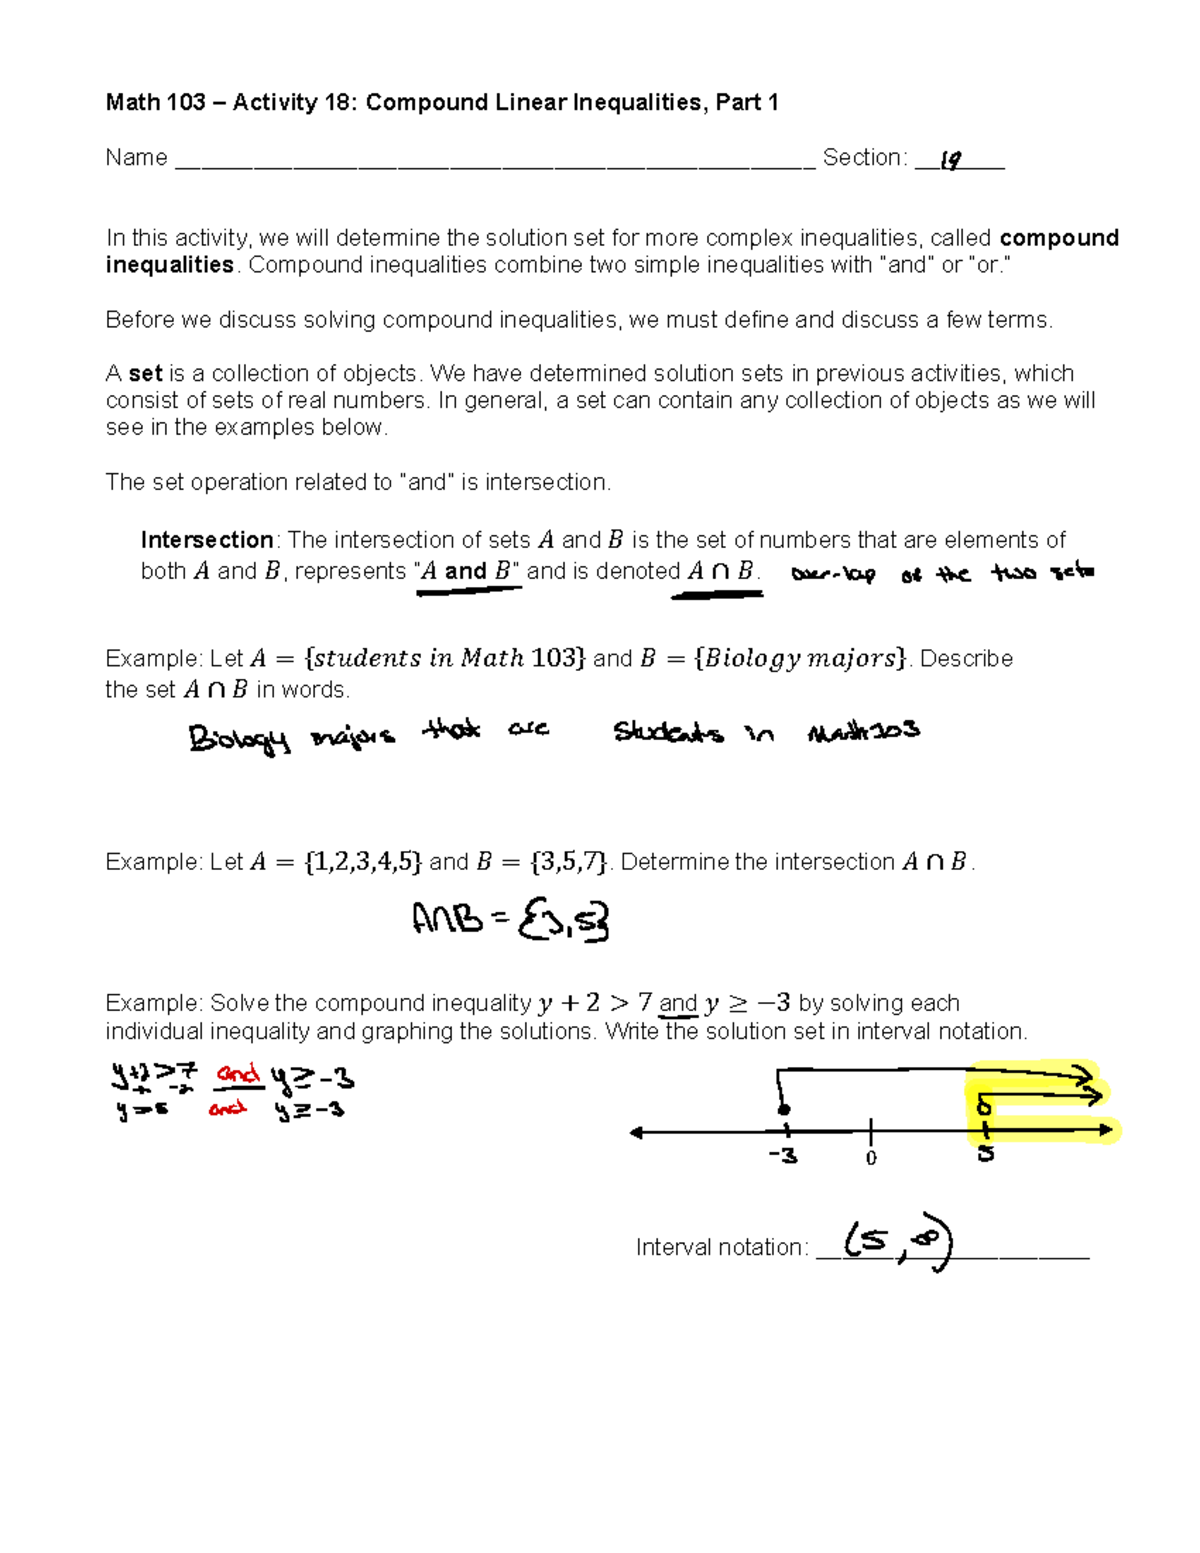 Math 103 – Activity 18: Compound Linear Inequalities, Part 1
Name ________________________________________________ Section: __19___
In this activity, we will determine the solution set for more complex inequalities, called compound
inequalities. Compound inequalities combine two simple inequalities with "and" or "or."
Before we discuss solving compound inequalities, we must define and discuss a few terms.
A set is a collection of objects. We have determined solution sets in previous activities, which
consist of sets of real numbers. In general, a set can contain any collection of objects as we will
see in the examples below.
The set operation related to "and" is intersection.
Intersection: The intersection of sets A and B is the set of numbers that are elements of
both A and B, represents "A and B" and is denoted A ∩ B. over-lap of the two sets
Example: Let A = {students in Math 103} and B = {Biology majors}. Describe
the set A ∩ B in words.
Biology majors that are students in Math 103
Example: Let A = {1,2,3,4,5} and B = {3,5,7}. Determine the intersection A ∩ B.
A∩B = {3,5}
Example: Solve the compound inequality y + 2 > 7 and y ≥ −3 by solving each
individual inequality and graphing the solutions. Write the solution set in interval notation.
y+2>7 and y≥-3
-2 -2
y>5 and y≥-3
-3 0 5
Interval notation: (5,∞)